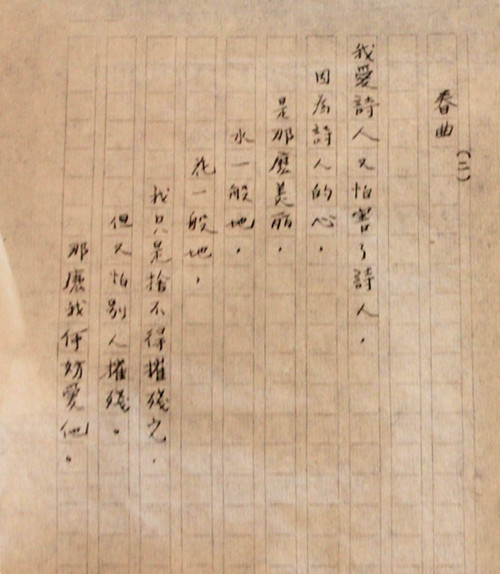 春曲（二）
我愛詩人又怕害了詩人，
因為詩人的心，
是那麼美丽，
水一般地，
花一般地，
我只是捨不得摧殘它，
但又怕别人摧殘。
那麼我何妨愛他。